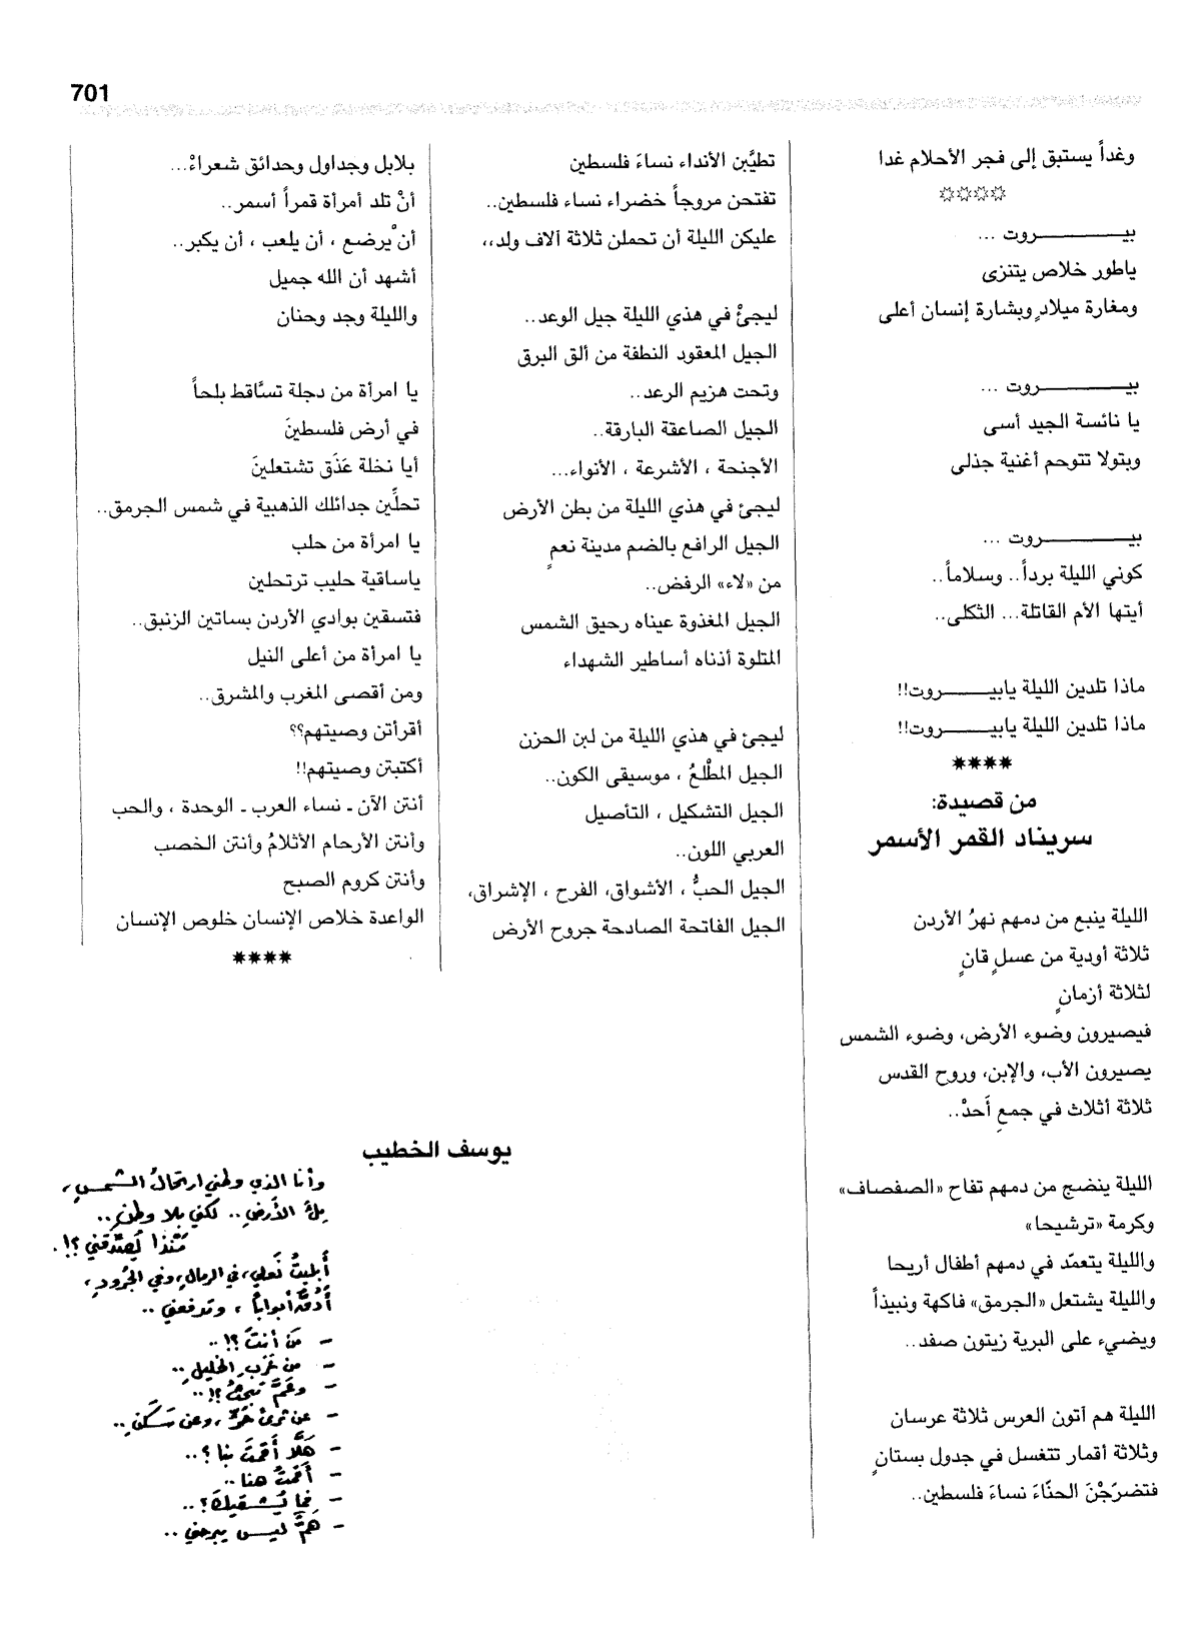 701
وغداً يستبق إلى فجر الأحلام غدا
☼☼☼☼
بيـــــــــروت ...
ياطور خلاص يتنزى
ومغارة ميلادٍ وبشارة إنسان أعلى
بيـــــــــروت ...
يا نائسة الجيد أسى
وبتولا تتوحم أغنية جذلى
بيـــــــــروت ...
كوني الليلة برداً.. وسلاماً..
أيتها الأم القاتلة... الثكلى..
ماذا تلدين الليلة يابيـــــــروت!!
ماذا تلدين الليلة يابيـــــــروت!!
****
من قصيدة:
سريناد القمر الأسمر
الليلة ينبع من دمهم نهرُ الأردن
ثلاثة أودية من عسلٍ قانٍ
لثلاثة أزمانٍ
فيصيرون وضوء الأرض، وضوء الشمس
يصيرون الأب، والإبن، وروح القدس
ثلاثة أثلاث في جمعِ أَحدْ..
الليلة ينضج من دمهم تفاح «الصفصاف»
وكرمة «ترشيحا»
والليلة يتعمّد في دمهم أطفال أريحا
والليلة يشتعل «الجرمق» فاكهة ونبيذاً
ويضيء على البرية زيتون صفد..
الليلة هم آتون العرس ثلاثة عرسان
وثلاثة أقمار تتغسل في جدول بستانٍ
فتضرَجْنَ الحنّاءَ نساءَ فلسطين..
تطيَّبن الأنداء نساءَ فلسطين
تفتحن مروجاً خضراء نساء فلسطين..
عليكن الليلة أن تحملن ثلاثة آلاف ولد،،
ليجئْ في هذي الليلة جيل الوعد..
الجيل المعقود النطفة من ألق البرق
وتحت هزيم الرعد..
الجيل الصاعقة البارقة..
الأجنحة ، الأشرعة ، الأنواء...
ليجئ في هذي الليلة من بطن الأرض
الجيل الرافع بالضم مدينة نعمٍ
من «لاء» الرفض..
الجيل المغذوة عيناه رحيق الشمس
المتلوة أذناه أساطير الشهداء
ليجئ في هذي الليلة من لبن الحزن
الجيل المطْلعُ ، موسيقى الكون..
الجيل التشكيل ، التأصيل
العربي اللون..
الجيل الحبُّ ، الأشواق، الفرح ، الإشراق،
الجيل الفاتحة الصادحة جروح الأرض
بلابل وجداول وحدائق شعراءْ...
أنْ تلد أمرأة قمراً أسمر..
أن ْيرضع ، أن يلعب ، أن يكبر..
أشهد أن الله جميل
والليلة وجد وحنان
يا امرأة من دجلة تسَّاقط بلحاً
في أرض فلسطينَ
أيا نخلة عَذَق تشتعلينَ
تحلِّين جدائلك الذهبية في شمس الجرمق..
يا امرأة من حلب
ياساقية حليب ترتحلين
فتسقين بوادي الأردن بساتين الزنبق..
يا امرأة من أعلى النيل
ومن أقصى المغرب والمشرق..
أقرأتن وصيتهم؟؟
أكتبتن وصيتهم!!
أنتن الآن ـ نساء العرب ـ الوحدة ، والحب
وأنتن الأرحام الأثلامُ وأنتن الخصب
وأنتن كروم الصبح
الواعدة خلاص الإنسان خلوص الإنسان
****
يوسف الخطيب
وأنا الذي وطني ارتحالُ الشمسِ،
ملءُ الأرضِ.. لكني بلا وطنِ..
مَنْذا يُصدّقني ؟!.
أبليتُ نَعلي، في الرمالِ، وفي الجُرُودِ،
أدُقُّ أبواباً ، وتدفعني ..
- مَن أنتَ ؟!..
- من عَرَبِ الخليلِ..
- وعَمَّ تبحثُ ؟!..
- عن ثرىً حُرٍّ ، وعن سَكَنِ..
- هَلَّا أقمتَ بنا ؟..
- أقمتُ هنا ..
- فما يُشقيكَ ؟..
- هَمٌّ ليس يبرحني ..